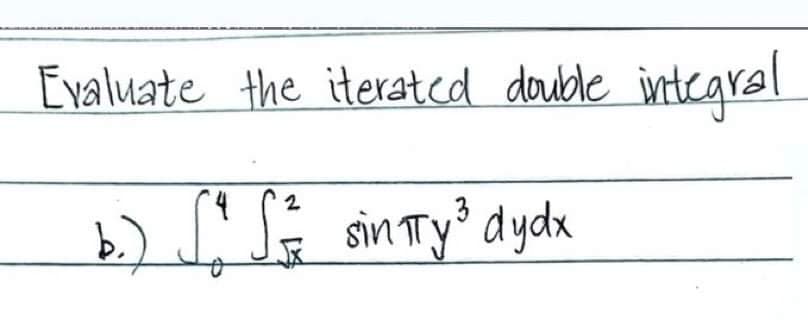 Evaluate the iterated double integral
b.) ∫₀⁴ ∫_√x² sin πy³ dydx